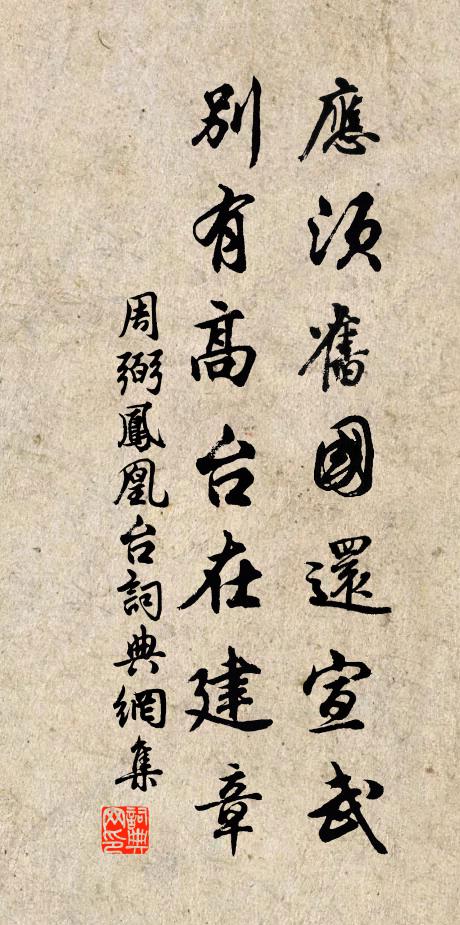 應須舊國還宣武
別有高台在建章
周弼鳳凰台詞典網集
詞典
网印